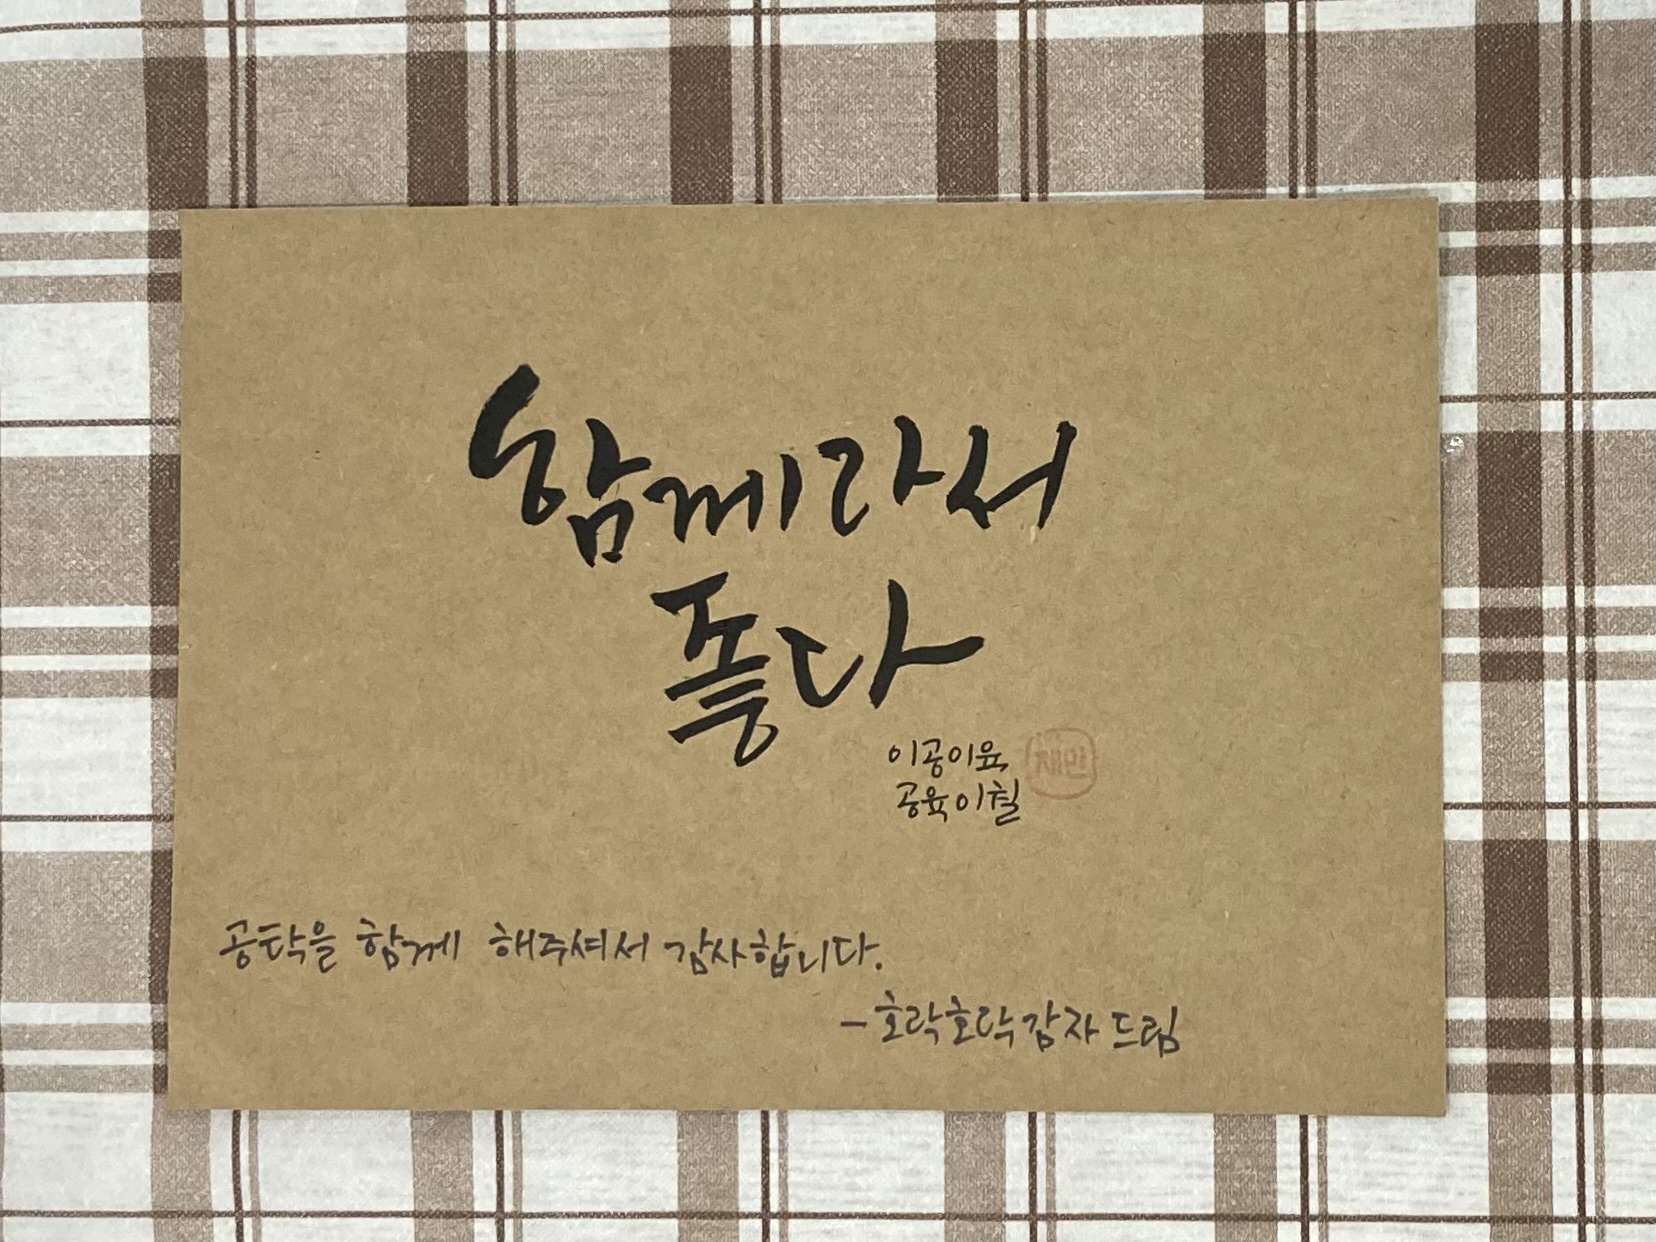 함께라서
좋다
이공이육
공육이칠
채민
공탁을 함께 해주셔서 감사합니다.
-호락호락감자 드림